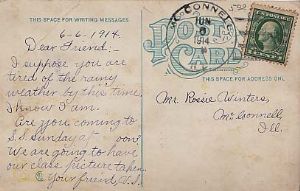 THIS SPACE FOR WRITING MESSAGES
POST CARD
THIS SPACE FOR ADDRESS ONLY.
McCONNELL
JUN
1914
6-6-1914.
Dear Friend:-
I suppose you are
tired of the rainy
weather by this time
I know I am.
Are you coming to
S.S. Sunday at
We are going to have
our class picture taken.
Your friend,
Mr. Rosie Winters,
McConnell,
Ill.